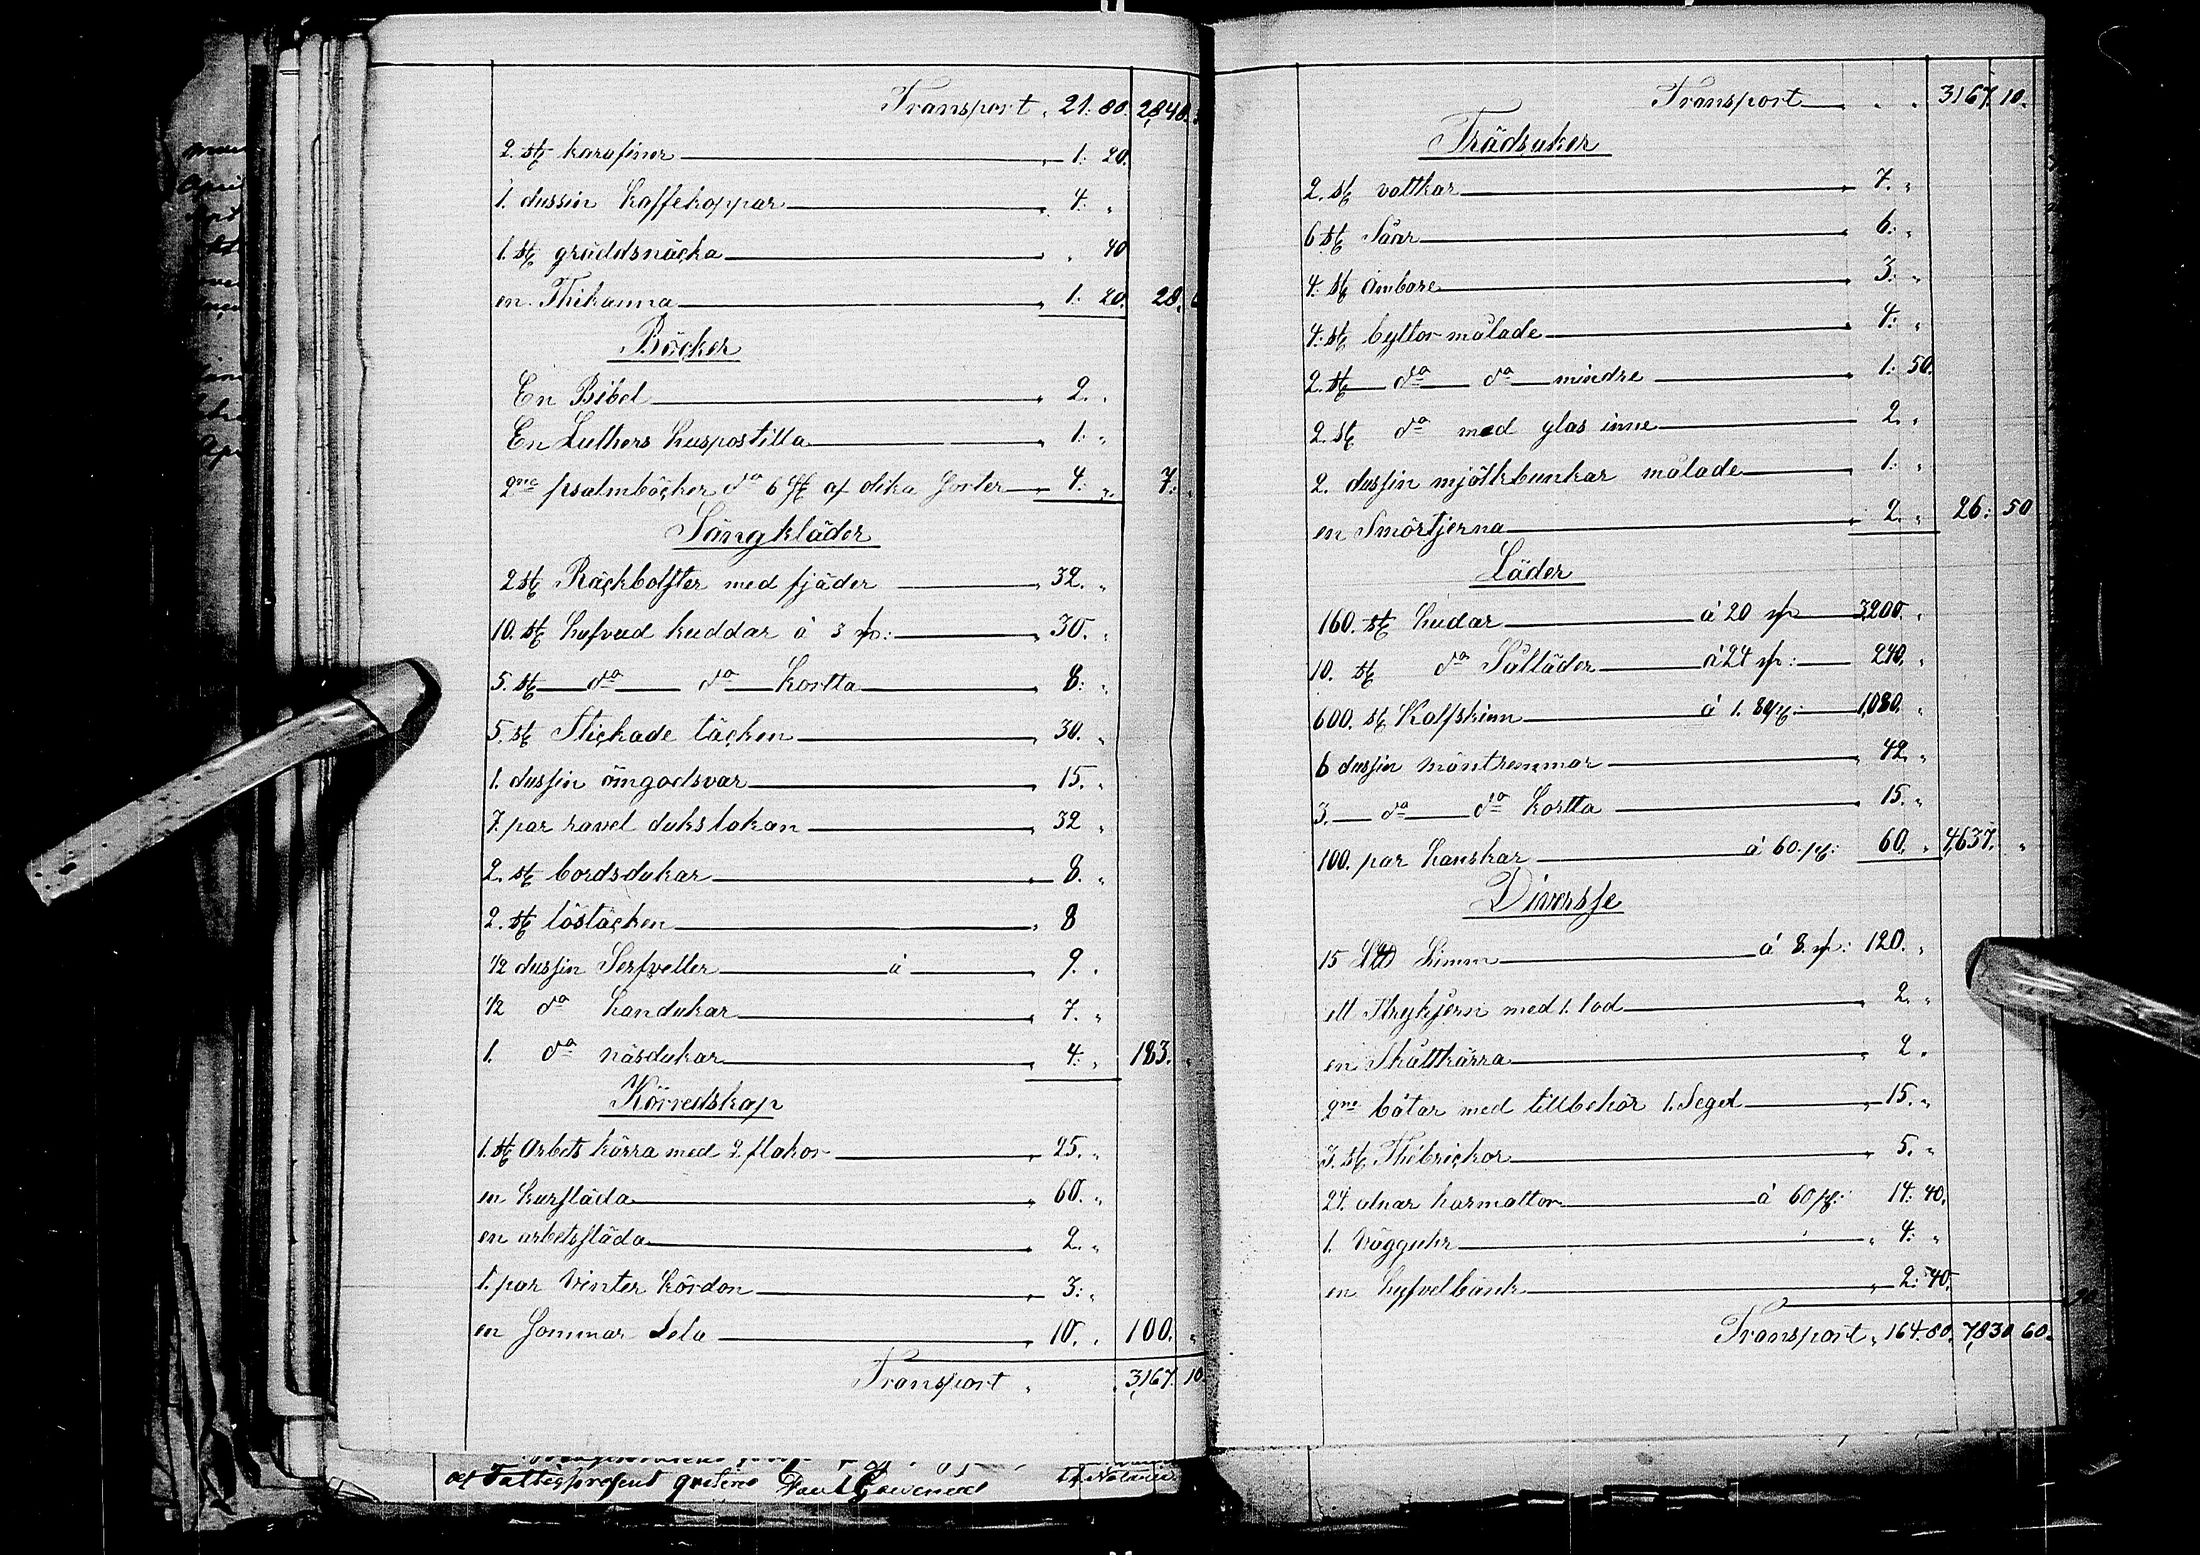 Transport „ 21: 80. 2,840.
2. st karafiner „ 1: 20.
1. dussin Kaffekoppar „ 4. „
1. st gräddsnäcka „ „ 40
en Thékanna „ 1: 20. 28.
Böcker
En Bibel „ 2. „
En Luthers huspostilla „ 1: „
2ne psalmböcker da 6 st af olika sorter „ 4: „ 7: „
Sängkläder
2 st Räckbolster med fjäder „ 32. „
10. st hufvud kuddar á 3 „ 30. „
5. st da da kortta „ 8: „
5. st Stickade täcken „ 30. „
1. dussin örngodsvar „ 15. „
7. par lakan „ 32 „
2. st bordsdukar „ 8. „
2. st löstäcken „ 8
1/2 dussin Serfvetter á 9. „
1/2 da handukar „ 7. „
1. da näsdukar „ 4: „ 183. „
Körredskap
1. st Arbets kärra med 2 flakor „ 25. „
en kursläda „ 60. „
en arbetssläda „ 2. „
1. par Vinter kördon „ 3: „
en Sommar Sela „ 10. „ 100. „
Transport „ „ 3,167. 10.
Transport „ „ 3167. 10.
Trädsaker
2. st vattkar „ 7. „
6 st Såar „ 6: „
4. st ämbare „ 3: „
4: st byttor målade „ 4: „
2. st da da mindre „ 1: 50.
2. st da med glas inne „ 2. „
2. dussin mjölkbunkar målade 1: „
en Smörtjerna „ 2. „ 26: 50
Läder
160. st hudar á 20 3200. „
10. st da Sålläder á 24 240. „
600. st Kalfskinn á 1. 80 1,080. „
6 dussin mäntremmar „ 42. „
3. da da kortta „ 15. „
100. par hanskar á 60. 60. „ 4,637. „
Diversse
15 Limm á 8. 120. „
ett Strykjern med 1. lod „ 2. „
en Skåttkärra „ 2. „
2ne båtar med tillbehör 1. Segel „ 15. „
3. st Thébrickor „ 5. „
24. alnar hårmattor á 60 14: 40.
1. Vägguhr „ 4: „
en hyfvelbänk „ 2: 40.
Transport „ 164. 80. 7,830 60.